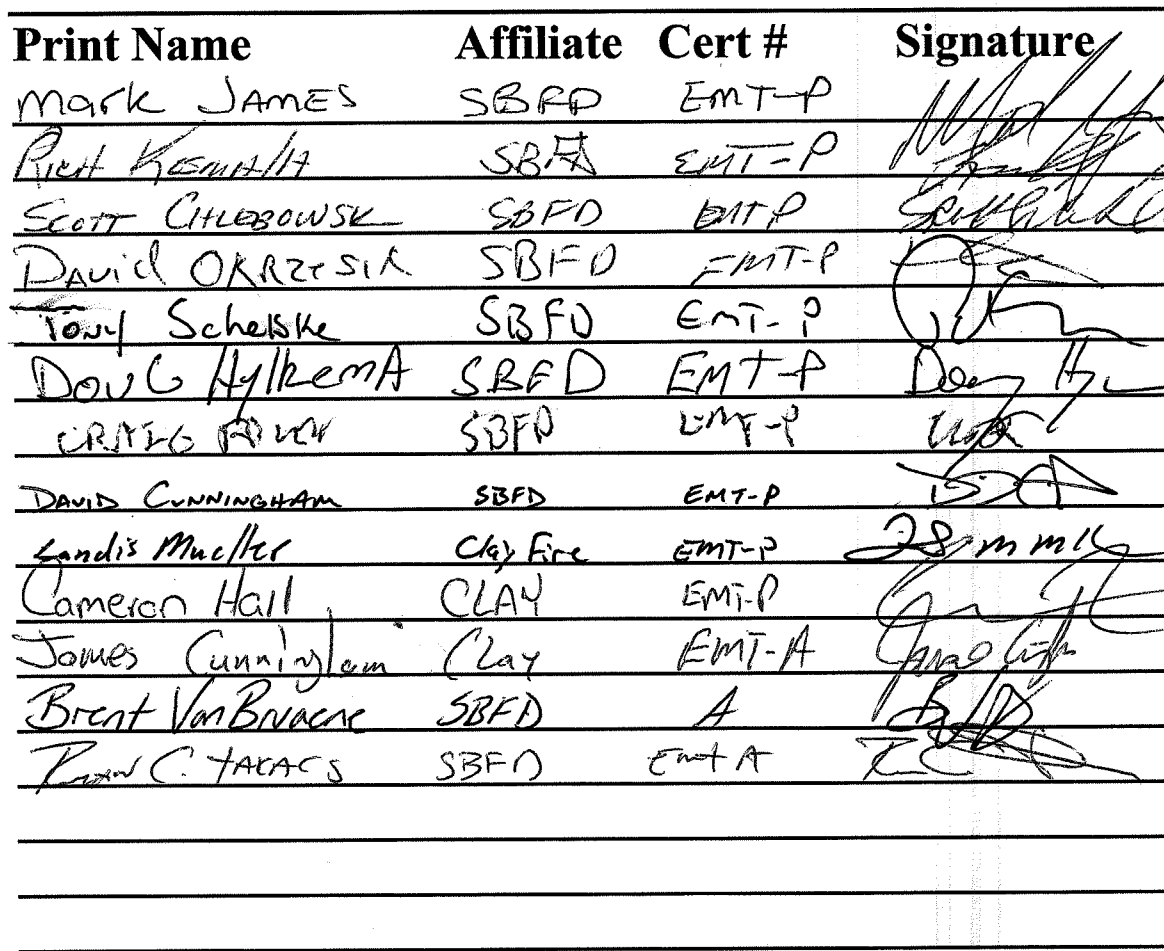 Print Name Affiliate Cert # Signature
Mark JAMES SBFD EMT-P
RICH KOSMALA SBFD EMT-P
SCOTT CHLEBOWSK SBFD EMT P
DAVID OKRZESIK SBFD EMT-P
Tony Schelske SBFD EMT-P
DOUG HylkemA SBFD EMT-P Doug
CRAIG SBFD EMT-P
DAVID CUNNINGHAM SBFD EMT-P
Landis Mueller Clay Fire EMT-P
Cameron Hall CLAY EMT-P
James Cunningham Clay EMT-A
Brent VanBruaene SBFD A
RYAN C. TAKACS SBFD Emt A